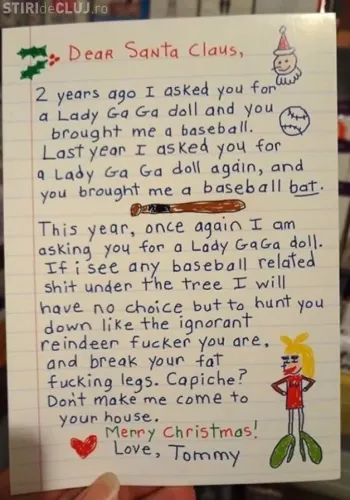 STIRIdeCLUJ.ro
Dear Santa Claus,
2 years ago I asked you for
a Lady Ga Ga doll and you
brought me a baseball.
Last year I asked you for
a Lady Ga Ga doll again, and
you brought me a baseball bat.
This year, once again I am
asking you for a Lady GaGa doll.
If i see any baseball related
shit under the tree I will
have no choice but to hunt you
down like the ignorant
reindeer fucker you are,
and break your fat
fucking legs. Capiche?
Don't make me come to
your house.
Merry Christmas!
Love, Tommy